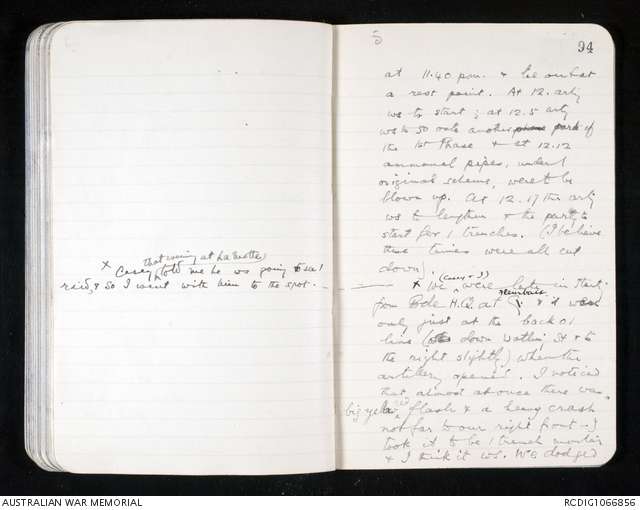 that evening at La Motte
x Casey told me he was going to see /
raid, & so I went with him to the spot.
5
94
at 11.40 pm. & lie out at
a rest point. At 12. arty
ws to start; at 12.5 arty
ws to go onto another phase part of
the 1st Phase & at 12.12
ammonal pipes, under /
original scheme, were to be
blown up. At 12.17 the arty
ws to lengthen & the party to
start for / trenches. (I believe
these times were all cut
down).
x We (Casey & I) were late in starting
from Bde H.Q. at & it was
only just at the back of /
line ( down & to
the right slightly) when the
artillery opened. I noticed
that almost at once there was a
big yellow red flash & a heavy crash
not far to our right front - I
took it to be / trench mortar
& I think it ws. We dodged
AUSTRALIAN WAR MEMORIAL
RCDIG1066856